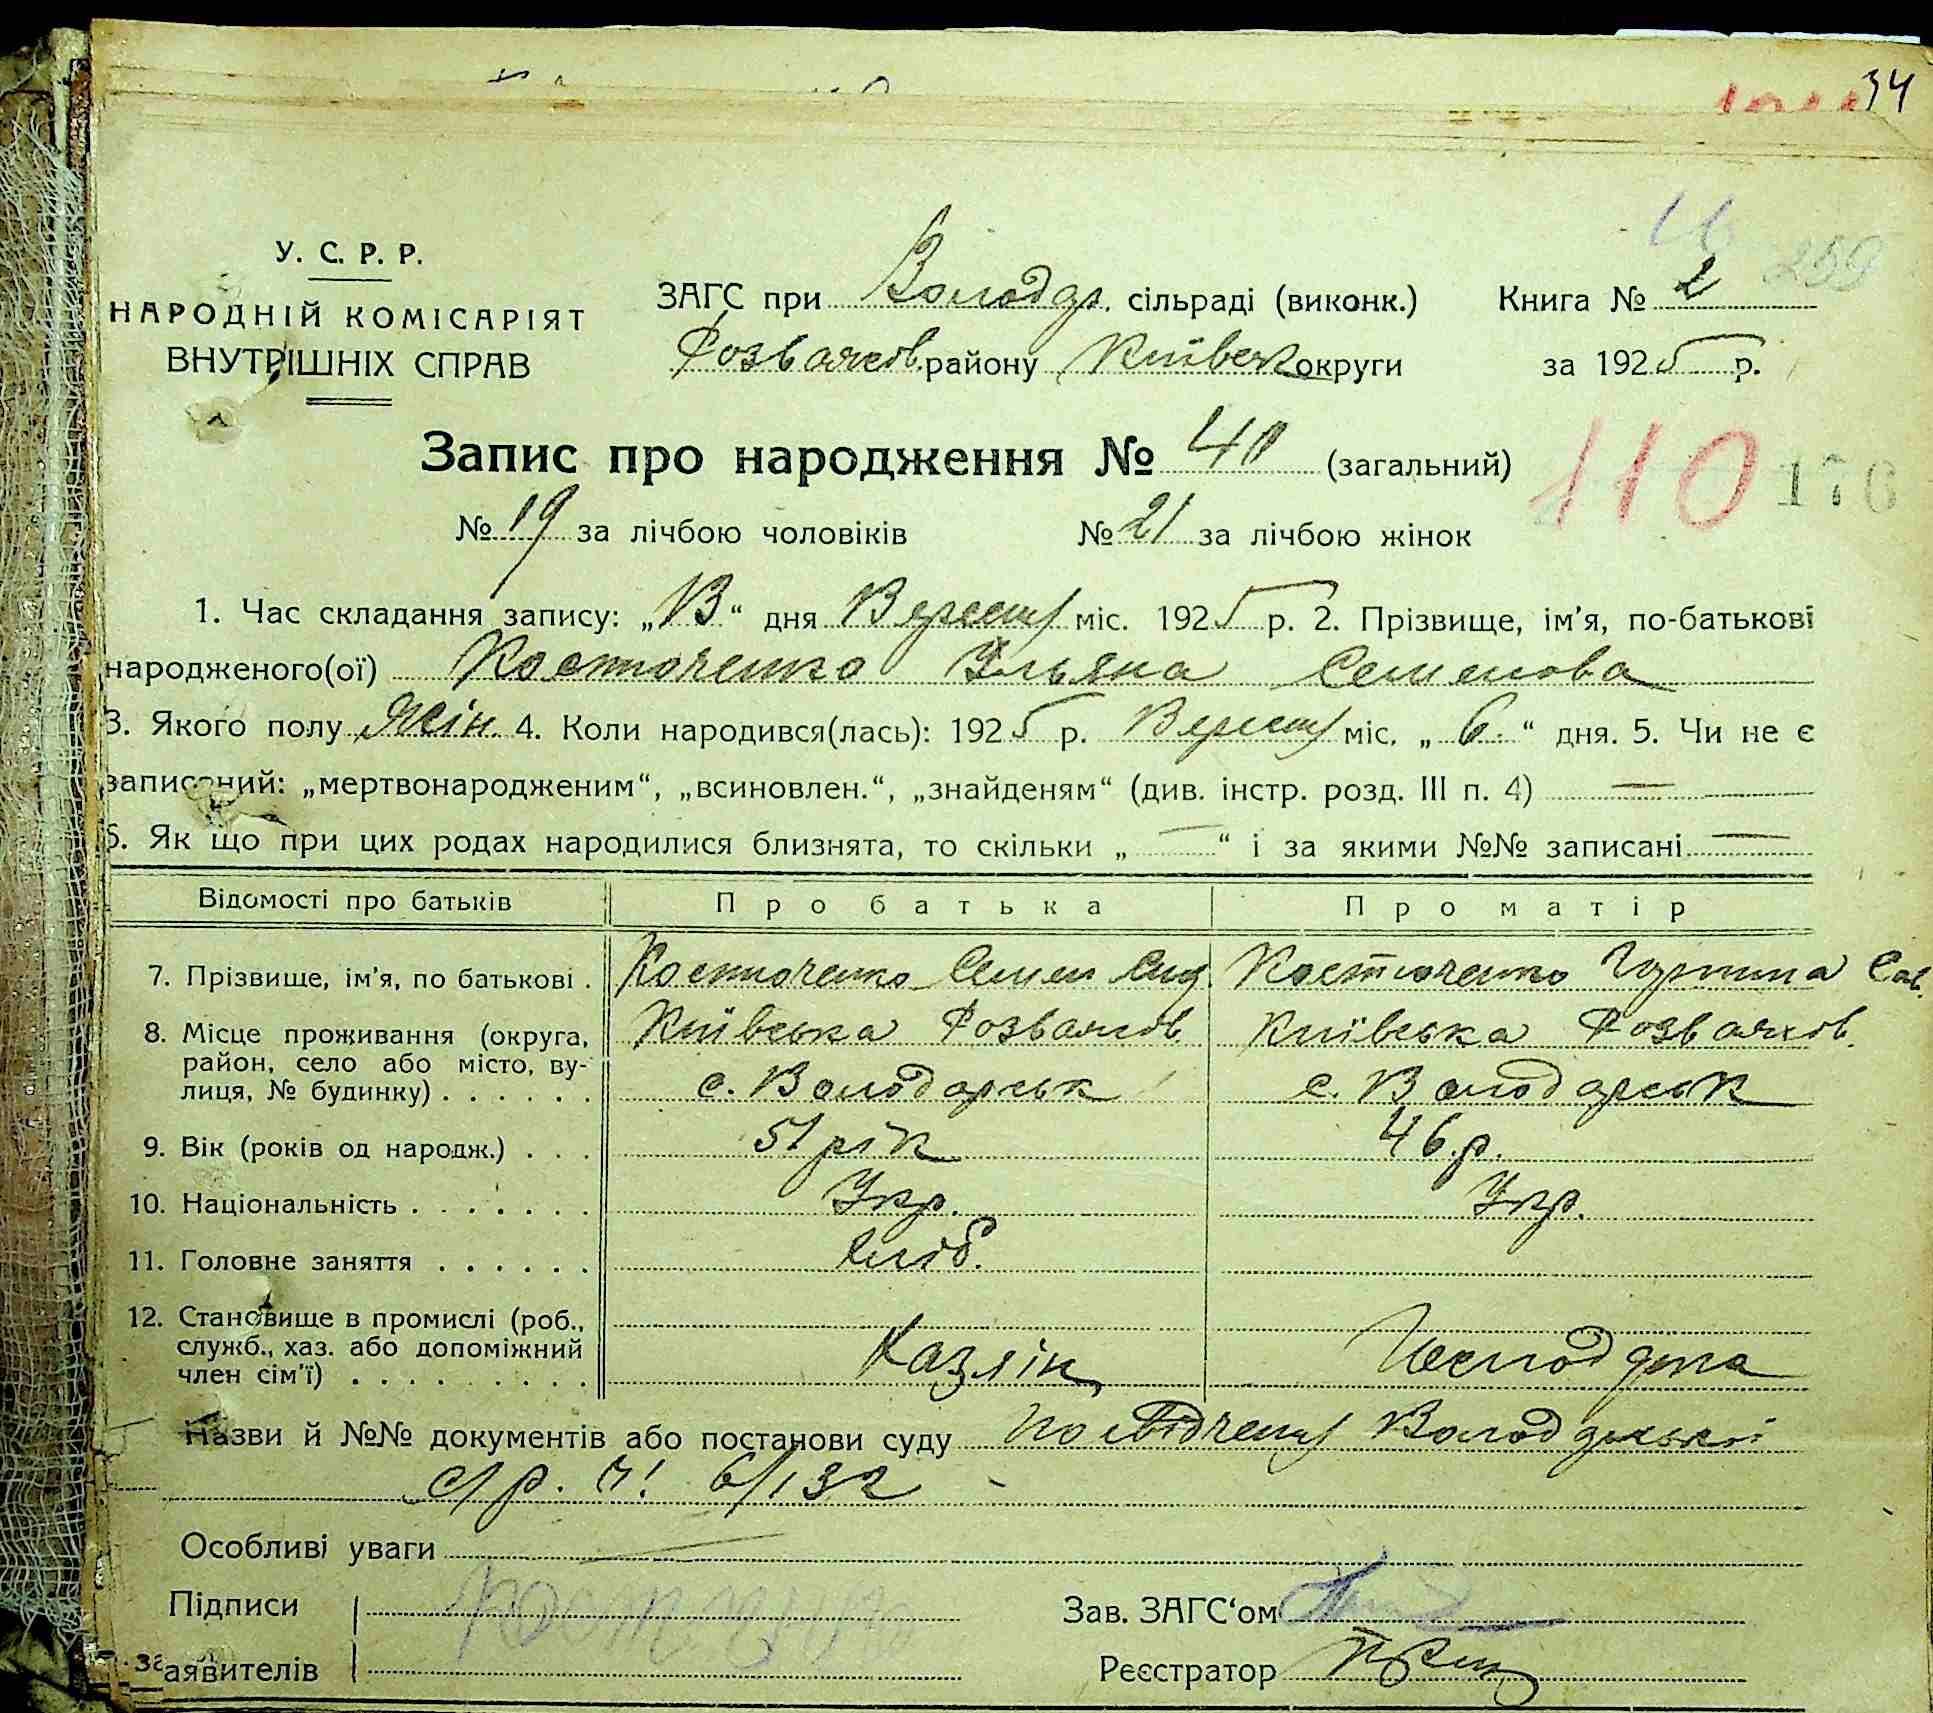 34
У. С. Р. Р.
НАРОДНІЙ КОМІСАРІЯТ
ВНУТРІШНІХ СПРАВ
259
ЗАГС при Володар. сільраді (виконк.) Книга № 2
Розважів. району Київськ округи за 1925 р.
Запис про народження № 40 (загальний)
110 176
№ 19 за лічбою чоловіків № 21 за лічбою жінок
1. Час складання запису: „ “ дня Вересня міс. 1925 р. 2. Прізвище, ім’я, по-батькові
народженого(ої) Костюченко Ульяна Семенова
3. Якого полу жін. 4. Коли народився(лась): 1925 р. Вересня міс. „ 6. “ дня. 5. Чи не є
записаний: „мертвонародженим“, „всиновлен.“, „знайденям“ (див. інстр. розд. III п. 4) —
6. Як що при цих родах народилися близнята, то скільки „ — “ і за якими №№ записані —
Відомості про батьків Про батька Про матір
7. Прізвище, ім’я, по батькові . Костюченко Семен Костюченко Горпина Сав.
8. Місце проживання (округа, Київська Розважів. Київська Розважів.
район, село або місто, ву-
лиця, № будинку) . . . . . . с. Володарськ с. Володарськ
9. Вік (років од народж.) . . . 51 рік 46.р.
10. Національність . . . . . . . Укр. Укр.
11. Головне заняття . . . . . . Хліб.
12. Становище в промислі (роб.,
служб., хаз. або допоміжний
член сім’ї) . . . . . . . . . Хазяін Господарка
Назви й №№ документів або постанови суду посвідчення Володарської
с/р. ч! 6/132
Особливі уваги —
Підписи Зав. ЗАГС‘ом
Заявителів Реєстратор